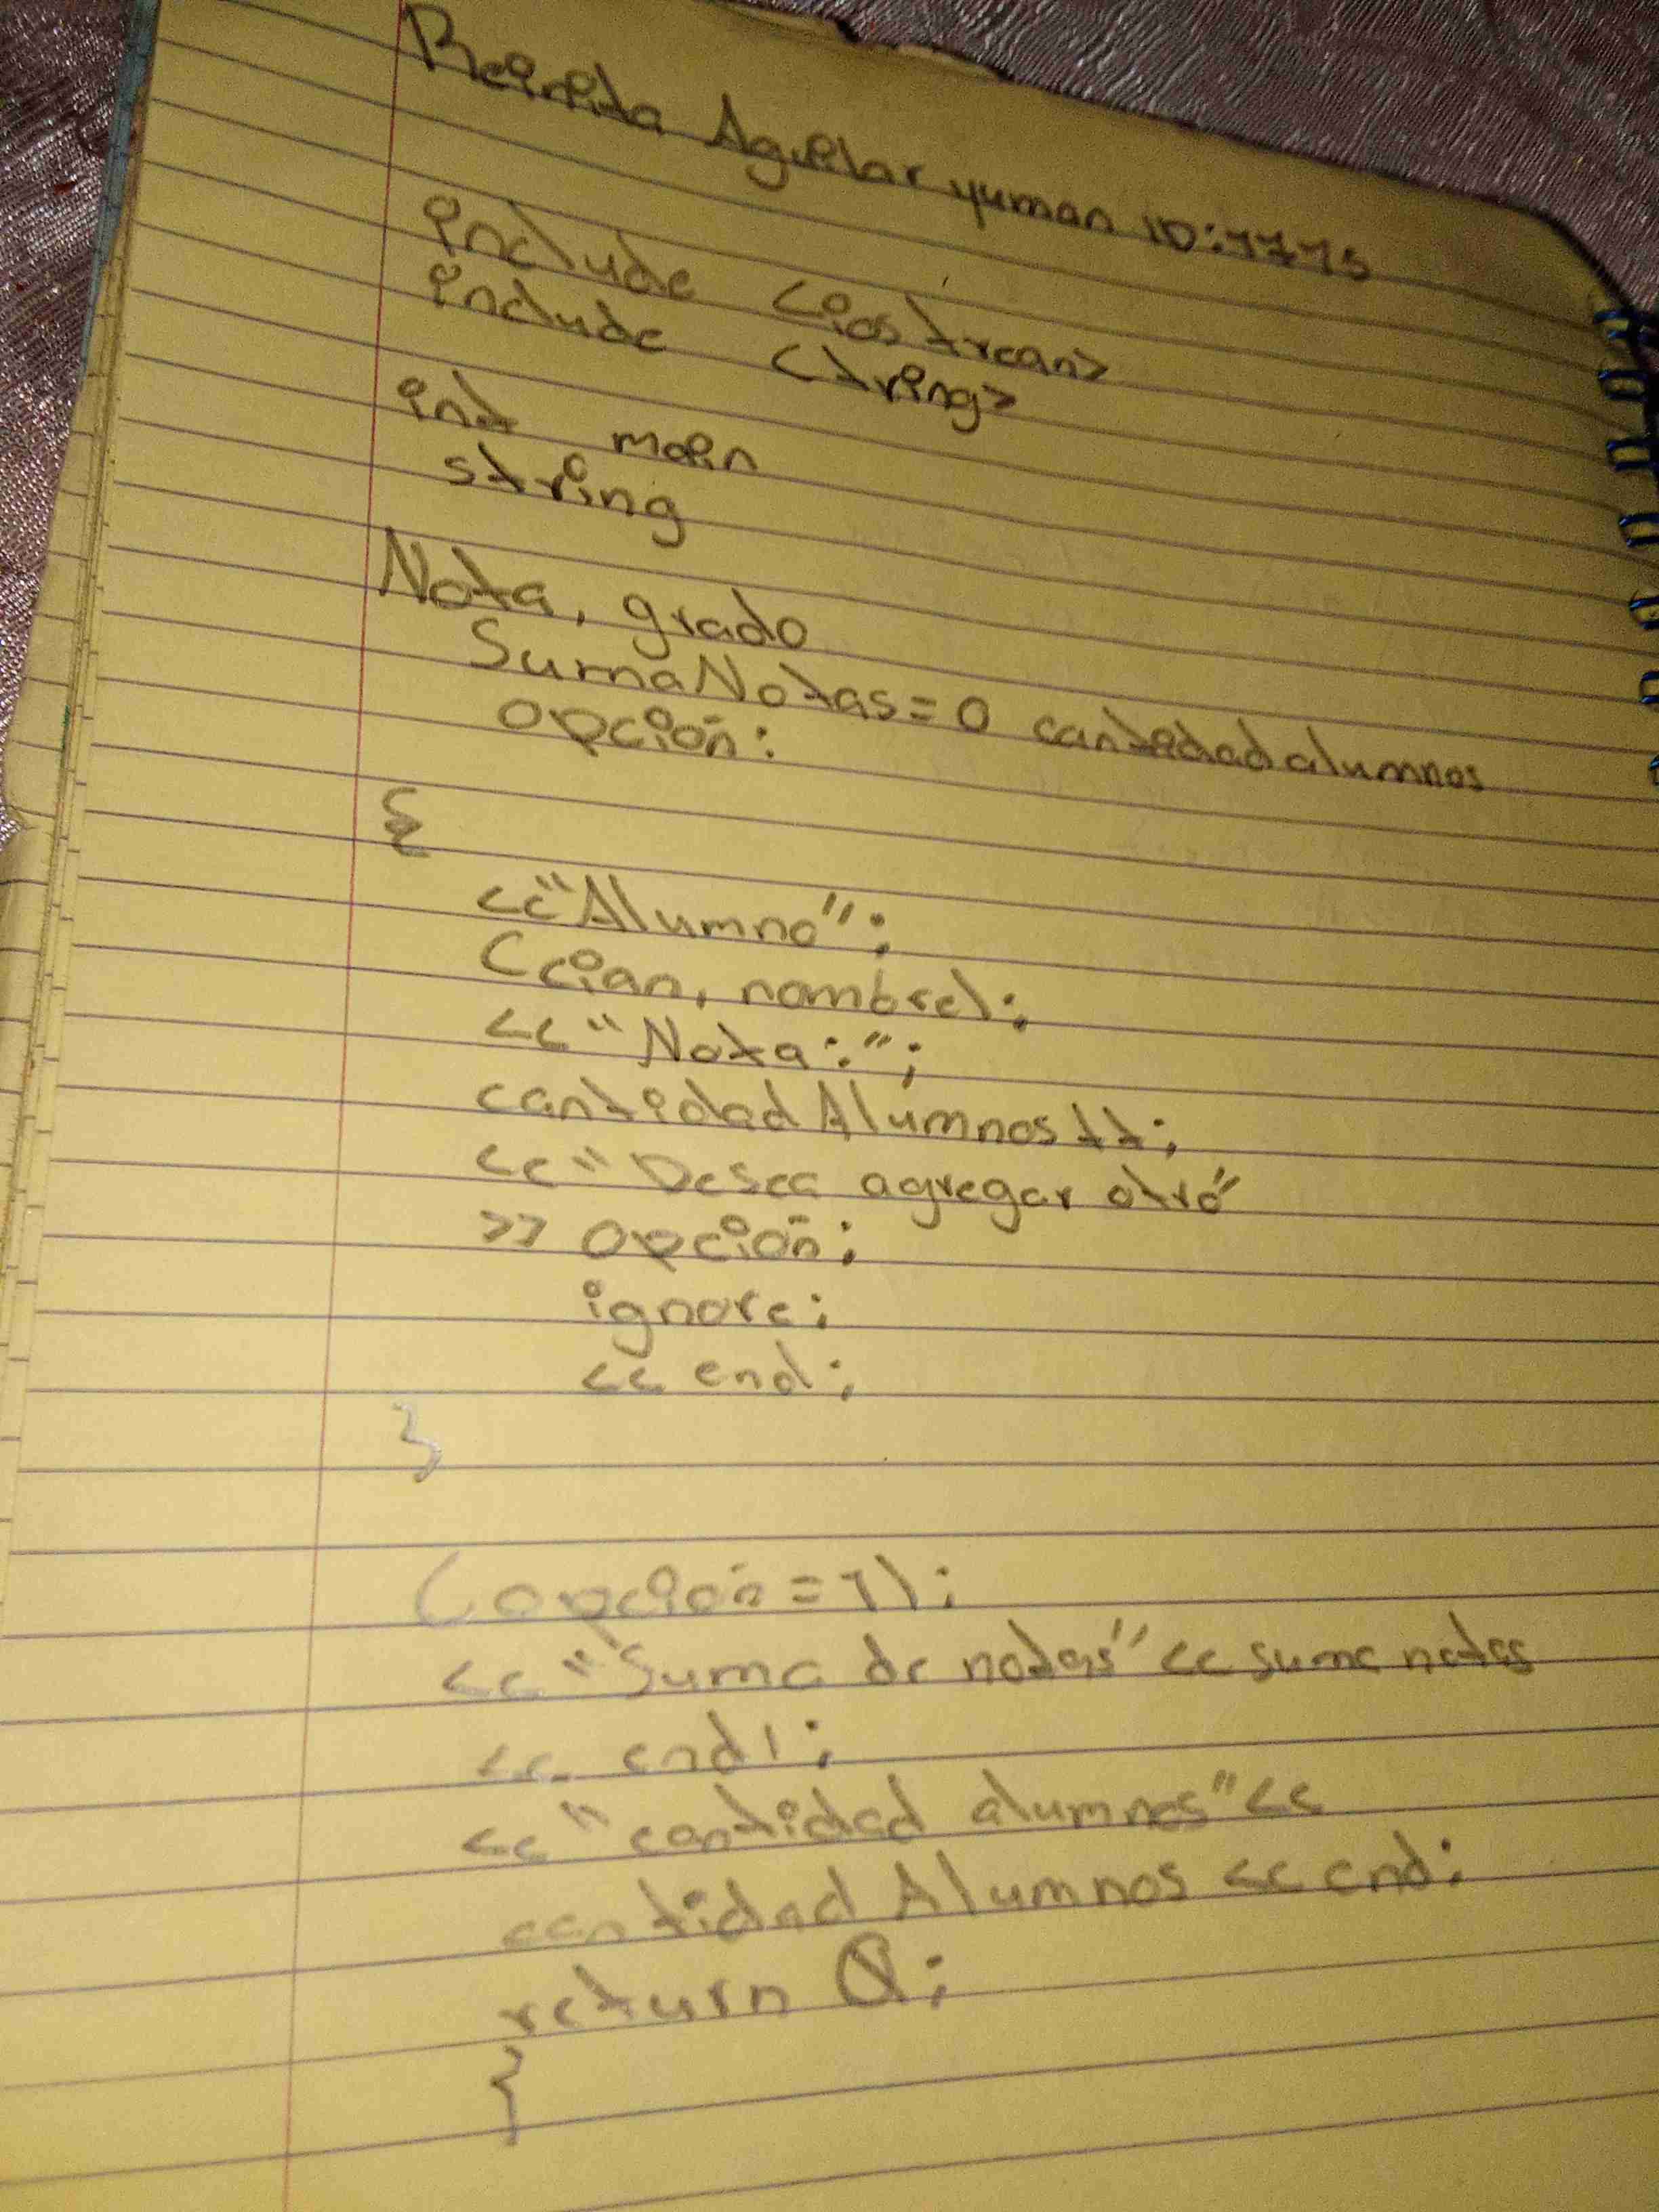 Reinita Aguilar yuman ID:7775
include <iostrean>
include <tring>
int main
string
Nota, grado
SumaNotas=0 cantidadalumnos
opción:
{
<<"Alumno";
(cian, nombre);
<<"Nota:";
cantidadAlumnos++;
<<"Desea agregar otro"
>> opción;
ignore;
<< end;
}
(opción=1);
<<"Suma de notas"<< suma notas
<< endl;
<<"cantidad alumnos"<<
cantidad Alumnos << end;
return 0;
}